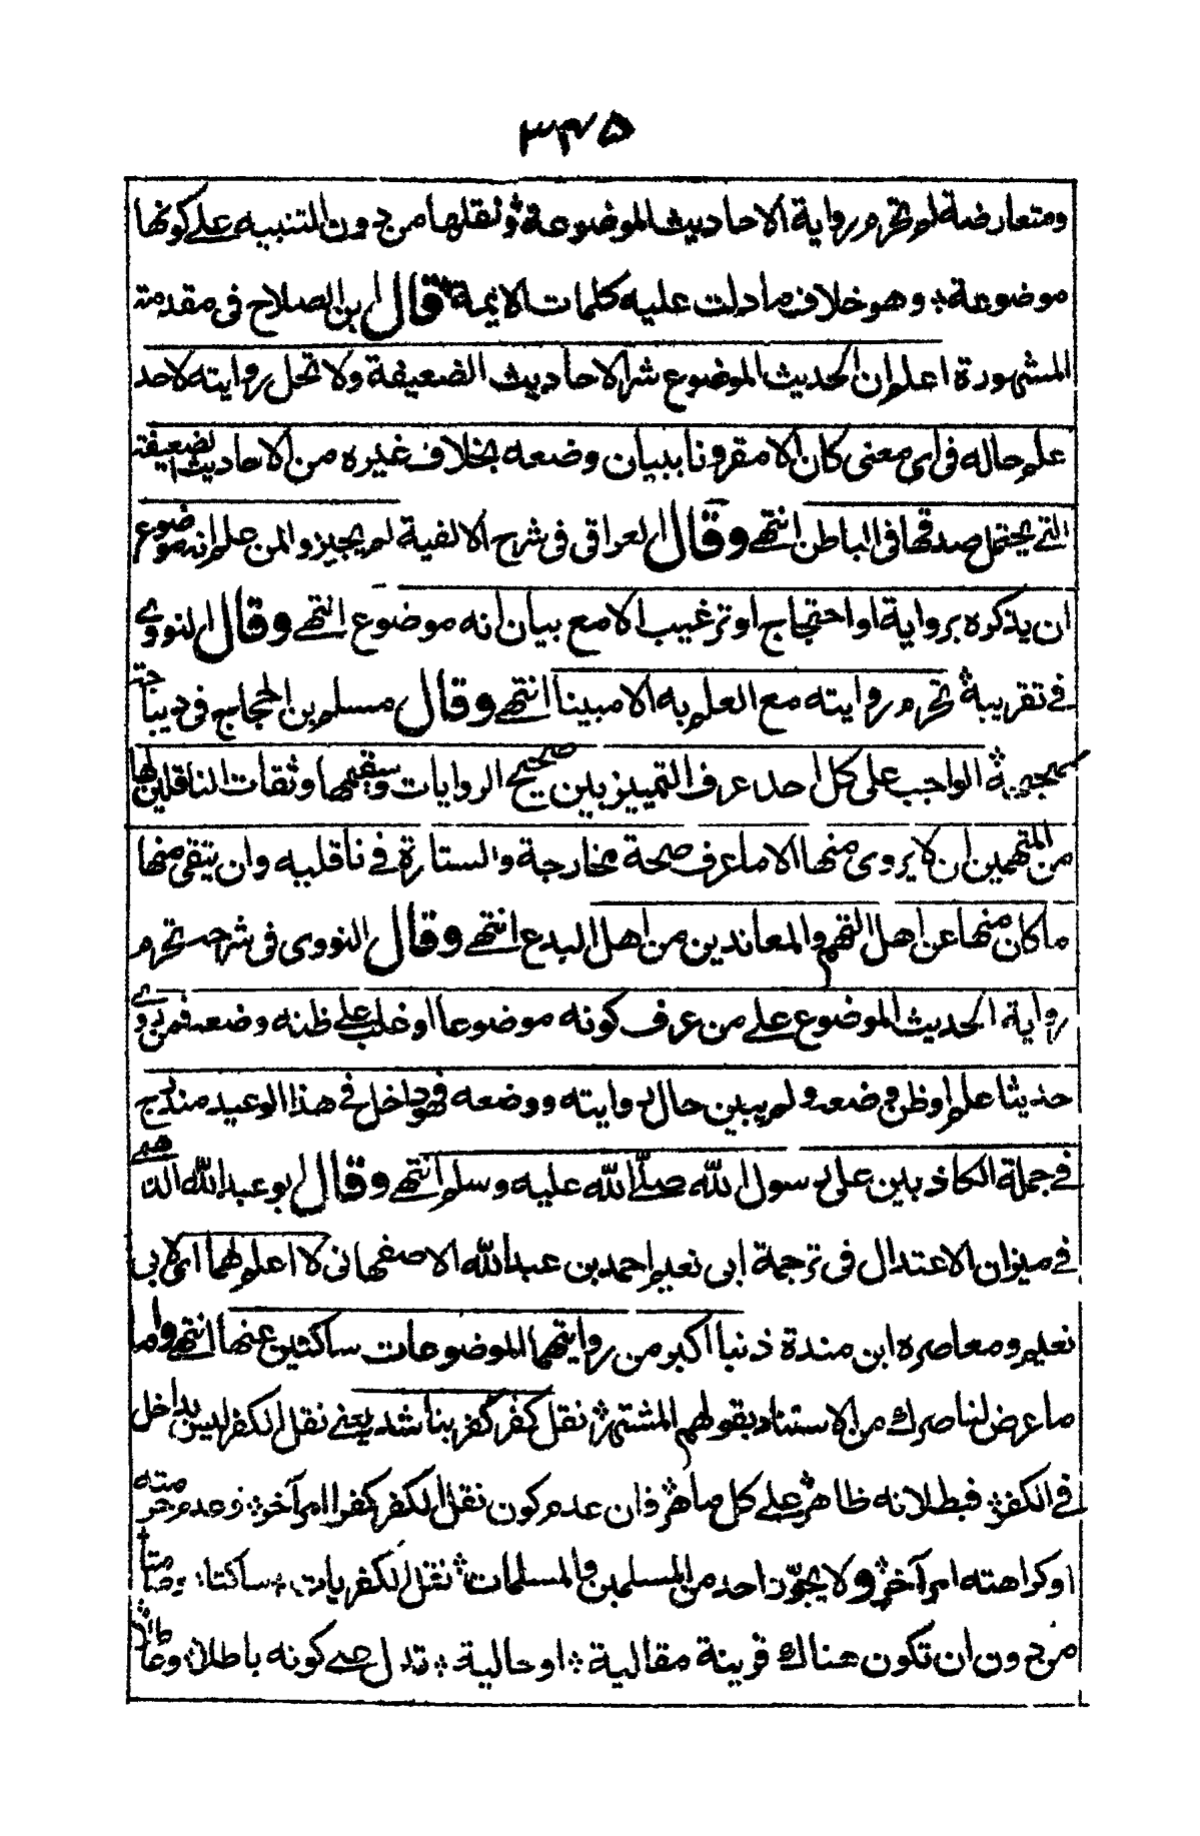 ۳۴۵
ومتعارضة لم تحرم رواية الاحاديث الموضوعة ونقلها من دون التنبيه على كونها
موضوعة وهو خلاف ما دلت عليه كلمات الائمة قال ابن الصلاح فى مقدمته
المشهورة اعلم ان الحديث الموضوع شر الاحاديث الضعيفة ولا تحل روايته لاحد
علم حاله فى اى معنى كان الا مقرونا ببيان وضعه بخلاف غيره من الاحاديث الضعيفة
التى يحتمل صدقها فى الباطن انتهى وقال العراقى فى شرح الالفية لم يجيزوا لمن علم انه موضوع
ان يذكره برواية او احتجاج او ترغيب الا مع بيان انه موضوع انتهى وقال النووى
فى تقريبه تحرم روايته مع العلم به الا مبينا انتهى وقال مسلم بن الحجاج فى ديباجة
صحيحه الواجب على كل احد عرف التمييز بين صحيح الروايات وسقيمها وثقات الناقلين لها
من المتهمين ان لا يروى منها الا ما عرف صحة مخارجة والستارة فى ناقليه وان يتقى منها
ما كان منها عن اهل التهم والمعاندين من اهل البدع انتهى وقال النووى فى شرحه تحرم
رواية الحديث الموضوع على من عرف كونه موضوعا او غلب على ظنه وضعه فمن روى
حديثا علم او ظن وضعه ولم يبين حال روايته ووضعه فهو داخل فى هذا الوعيد مندرج
فى جملة الكاذبين على رسول الله صلى الله عليه وسلم انتهى وقال ابو عبد الله الذهبى
فى ميزان الاعتدال فى ترجمة ابى نعيم احمد بن عبد الله الاصفهانى لا اعلم لهما اى لابى
نعيم ومعاصره ابن مندة ذنبا اكبر من روايتهما الموضوعات ساكتين عنها انتهى واما
ما عرض لناصرك من الاستناد بقولهم المشتهر نقل كفر كفر بناشد يعنى نقل الكفر ليس بداخل
فى الكفر فبطلانه ظاهر على كل ماهر فان عدم كون نقل الكفر كفرا امر آخر وعدم حرمته
او كراهته امر آخر ولا يجوّز احد من المسلمين والمسلمات نقل الكفريات ساكتا وصامتا
من دون ان تكون هناك قرينة مقالية او حالية تدل على كونه باطلا